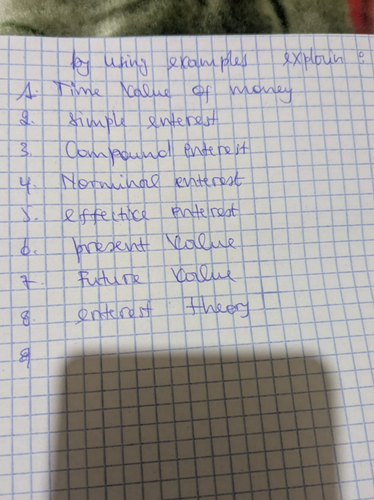 by using examples explain :
1. Time Value of money
2. simple enterest
3. Compound enterest
4. Norminal enterest
5. effectice enterest
6. present Value
7. Future Value
8. enterest theory
9